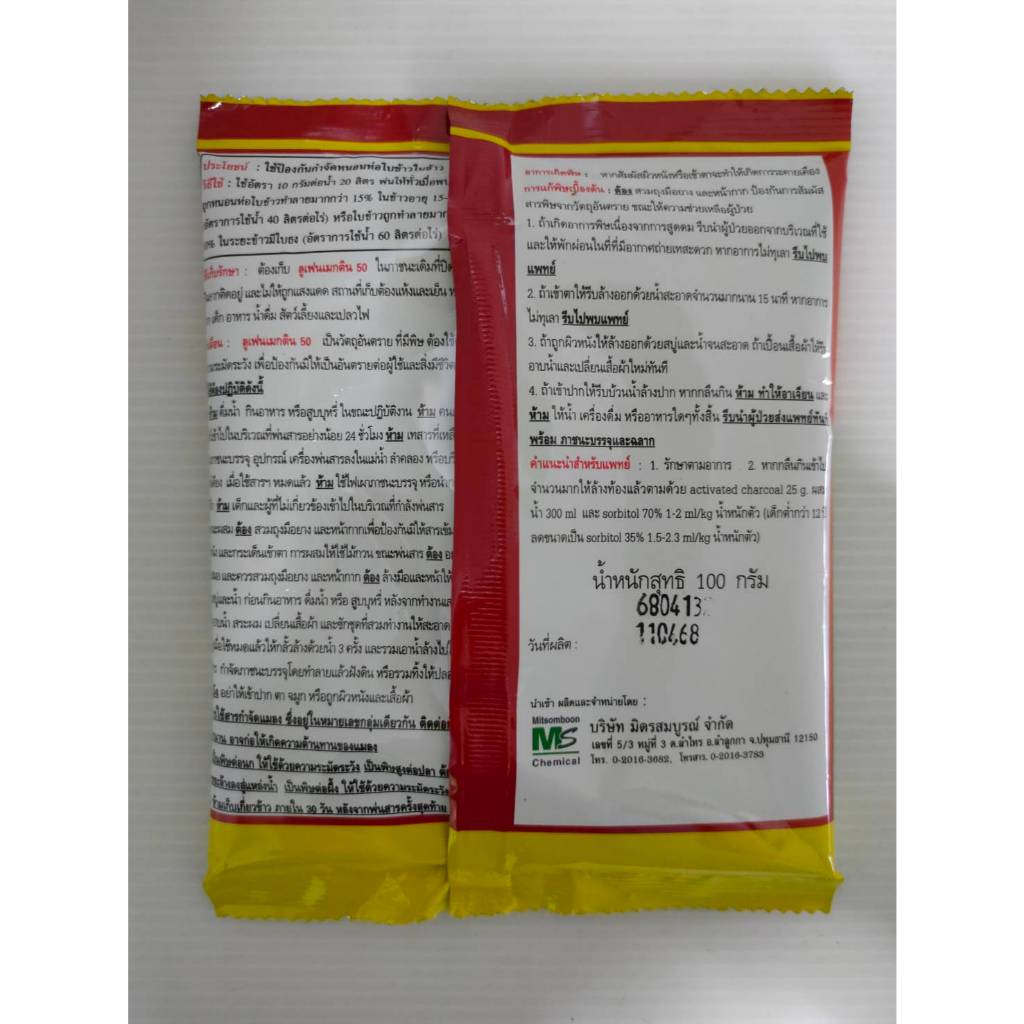 ประโยชน์ : ใช้ป้องกันกำจัดหนอนห่อใบข้าวในข้าว
วิธีใช้ : ใช้อัตรา 10 กรัมต่อน้ำ 20 ลิตร พ่นให้ทั่วเมื่อพบ
ถูกหนอนห่อใบข้าวทำลายมากกว่า 15% ในข้าวอายุ 15-
(อัตราการใช้น้ำ 40 ลิตรต่อไร่) หรือใบข้าวถูกทำลายมาก
ในระยะข้าวมีใบธง (อัตราการใช้น้ำ 60 ลิตรต่อไร่)
เก็บรักษา : ต้องเก็บ ลูเฟนเมกติน 50 ในภาชนะเดิมที่ปิด
ติดอยู่ และไม่ให้ถูกแสงแดด สถานที่เก็บต้องแห้งและเย็น
เด็ก อาหาร น้ำดื่ม สัตว์เลี้ยงและเปลวไฟ
เตือน : ลูเฟนเมกติน 50 เป็นวัตถุอันตราย ที่มีพิษ ต้องใช้
ระมัดระวัง เพื่อป้องกันมิให้เป็นอันตรายต่อผู้ใช้และสิ่งมีชีวิต
ต้องปฏิบัติดังนี้
ห้าม ดื่มน้ำ กินอาหาร หรือสูบบุหรี่ ในขณะปฏิบัติงาน ห้าม คน
เข้าไปในบริเวณที่พ่นสารอย่างน้อย 24 ชั่วโมง ห้าม เทสารที่เหลือ
ภาชนะบรรจุ อุปกรณ์ เครื่องพ่นสารลงในแม่น้ำ ลำคลอง หรือ
เมื่อใช้สารฯ หมดแล้ว ห้าม ใช้ไฟเผาภาชนะบรรจุ หรือนำ
ห้าม เด็กและผู้ที่ไม่เกี่ยวข้องเข้าไปในบริเวณที่กำลังพ่นสาร
ผสม ต้อง สวมถุงมือยาง และหน้ากากเพื่อป้องกันมิให้สารเข้ม
และกระเด็นเข้าตา การผสมให้ใช้ไม้กวน ขณะพ่นสาร ต้อง
และควรสวมถุงมือยาง และหน้ากาก ต้อง ล้างมือและหน้าให้
และน้ำ ก่อนกินอาหาร ดื่มน้ำ หรือ สูบบุหรี่ หลังจากทำงาน
สระผม เปลี่ยนเสื้อผ้า และซักชุดที่สวมทำงานให้สะอาด
เมื่อใช้หมดแล้วให้กลั้วล้างด้วยน้ำ 3 ครั้ง และรวมเอาน้ำล้างไป
กำจัดภาชนะบรรจุโดยทำลายแล้วฝังดิน หรือรวมทิ้งให้ปลอด
อย่าให้เข้าปาก ตา จมูก หรือถูกผิวหนังและเสื้อผ้า
ใช้สารกำจัดแมลง ซึ่งอยู่ในหมายเลขกลุ่มเดียวกัน ติดต่อ
อาจก่อให้เกิดความต้านทานของแมลง
พิษต่อนก ให้ใช้ด้วยความระมัดระวัง เป็นพิษสูงต่อปลา
ลงสู่แหล่งน้ำ เป็นพิษต่อผึ้ง ให้ใช้ด้วยความระมัดระวัง
ห้ามเก็บเกี่ยวข้าว ภายใน 30 วัน หลังจากพ่นสารครั้งสุดท้าย
อาการเกิดพิษ : หากสัมผัสผิวหนังหรือเข้าตาจะทำให้เกิดการระคายเคือง
การแก้พิษเบื้องต้น : ต้อง สวมถุงมือยาง และหน้ากาก ป้องกันการสัมผัส
สารพิษจากวัตถุอันตราย ขณะให้ความช่วยเหลือผู้ป่วย
1. ถ้าเกิดอาการพิษเนื่องจากการสูดดม รีบนำผู้ป่วยออกจากบริเวณที่ใช้
และให้พักผ่อนในที่ที่มีอากาศถ่ายเทสะดวก หากอาการไม่ทุเลา รีบไปพบ
แพทย์
2. ถ้าเข้าตาให้รีบล้างออกด้วยน้ำสะอาดจำนวนมากนาน 15 นาที หากอาการ
ไม่ทุเลา รีบไปพบแพทย์
3. ถ้าถูกผิวหนังให้ล้างออกด้วยสบู่และน้ำจนสะอาด ถ้าเปื้อนเสื้อผ้าให้รีบ
อาบน้ำและเปลี่ยนเสื้อผ้าใหม่ทันที
4. ถ้าเข้าปากให้รีบบ้วนน้ำล้างปาก หากกลืนกิน ห้าม ทำให้อาเจียน และ
ห้าม ให้น้ำ เครื่องดื่ม หรืออาหารใดๆทั้งสิ้น รีบนำผู้ป่วยส่งแพทย์ทันที
พร้อม ภาชนะบรรจุและฉลาก
คำแนะนำสำหรับแพทย์ : 1. รักษาตามอาการ 2. หากกลืนกินเข้าไป
จำนวนมากให้ล้างท้องแล้วตามด้วย activated charcoal 25 g. ผสม
น้ำ 300 ml และ sorbitol 70% 1-2 ml/kg น้ำหนักตัว (เด็กต่ำกว่า 12 ปี
ลดขนาดเป็น sorbitol 35% 1.5-2.3 ml/kg น้ำหนักตัว)
น้ำหนักสุทธิ 100 กรัม
680413
110468
วันที่ผลิต :
นำเข้า ผลิตและจำหน่ายโดย :
Mitsomboon
MS
Chemical
บริษัท มิตรสมบูรณ์ จำกัด
เลขที่ 5/3 หมู่ที่ 3 ต.ลำไทร อ.ลำลูกกา จ.ปทุมธานี 12150
โทร. 0-2016-3682, โทรสาร. 0-2016-3783